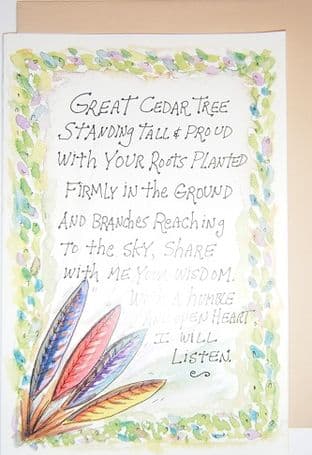 GREAT CEDAR TREE
STANDING TALL & PROUD
with YOUR ROOTS PLANTED
FIRMLY in the GROUND
AND BRANCHES REACHING
TO the SKY, SHARE
with ME YOUR WISDOM.
With A humble
AND OPEN HEART,
I WILL
LISTEN.